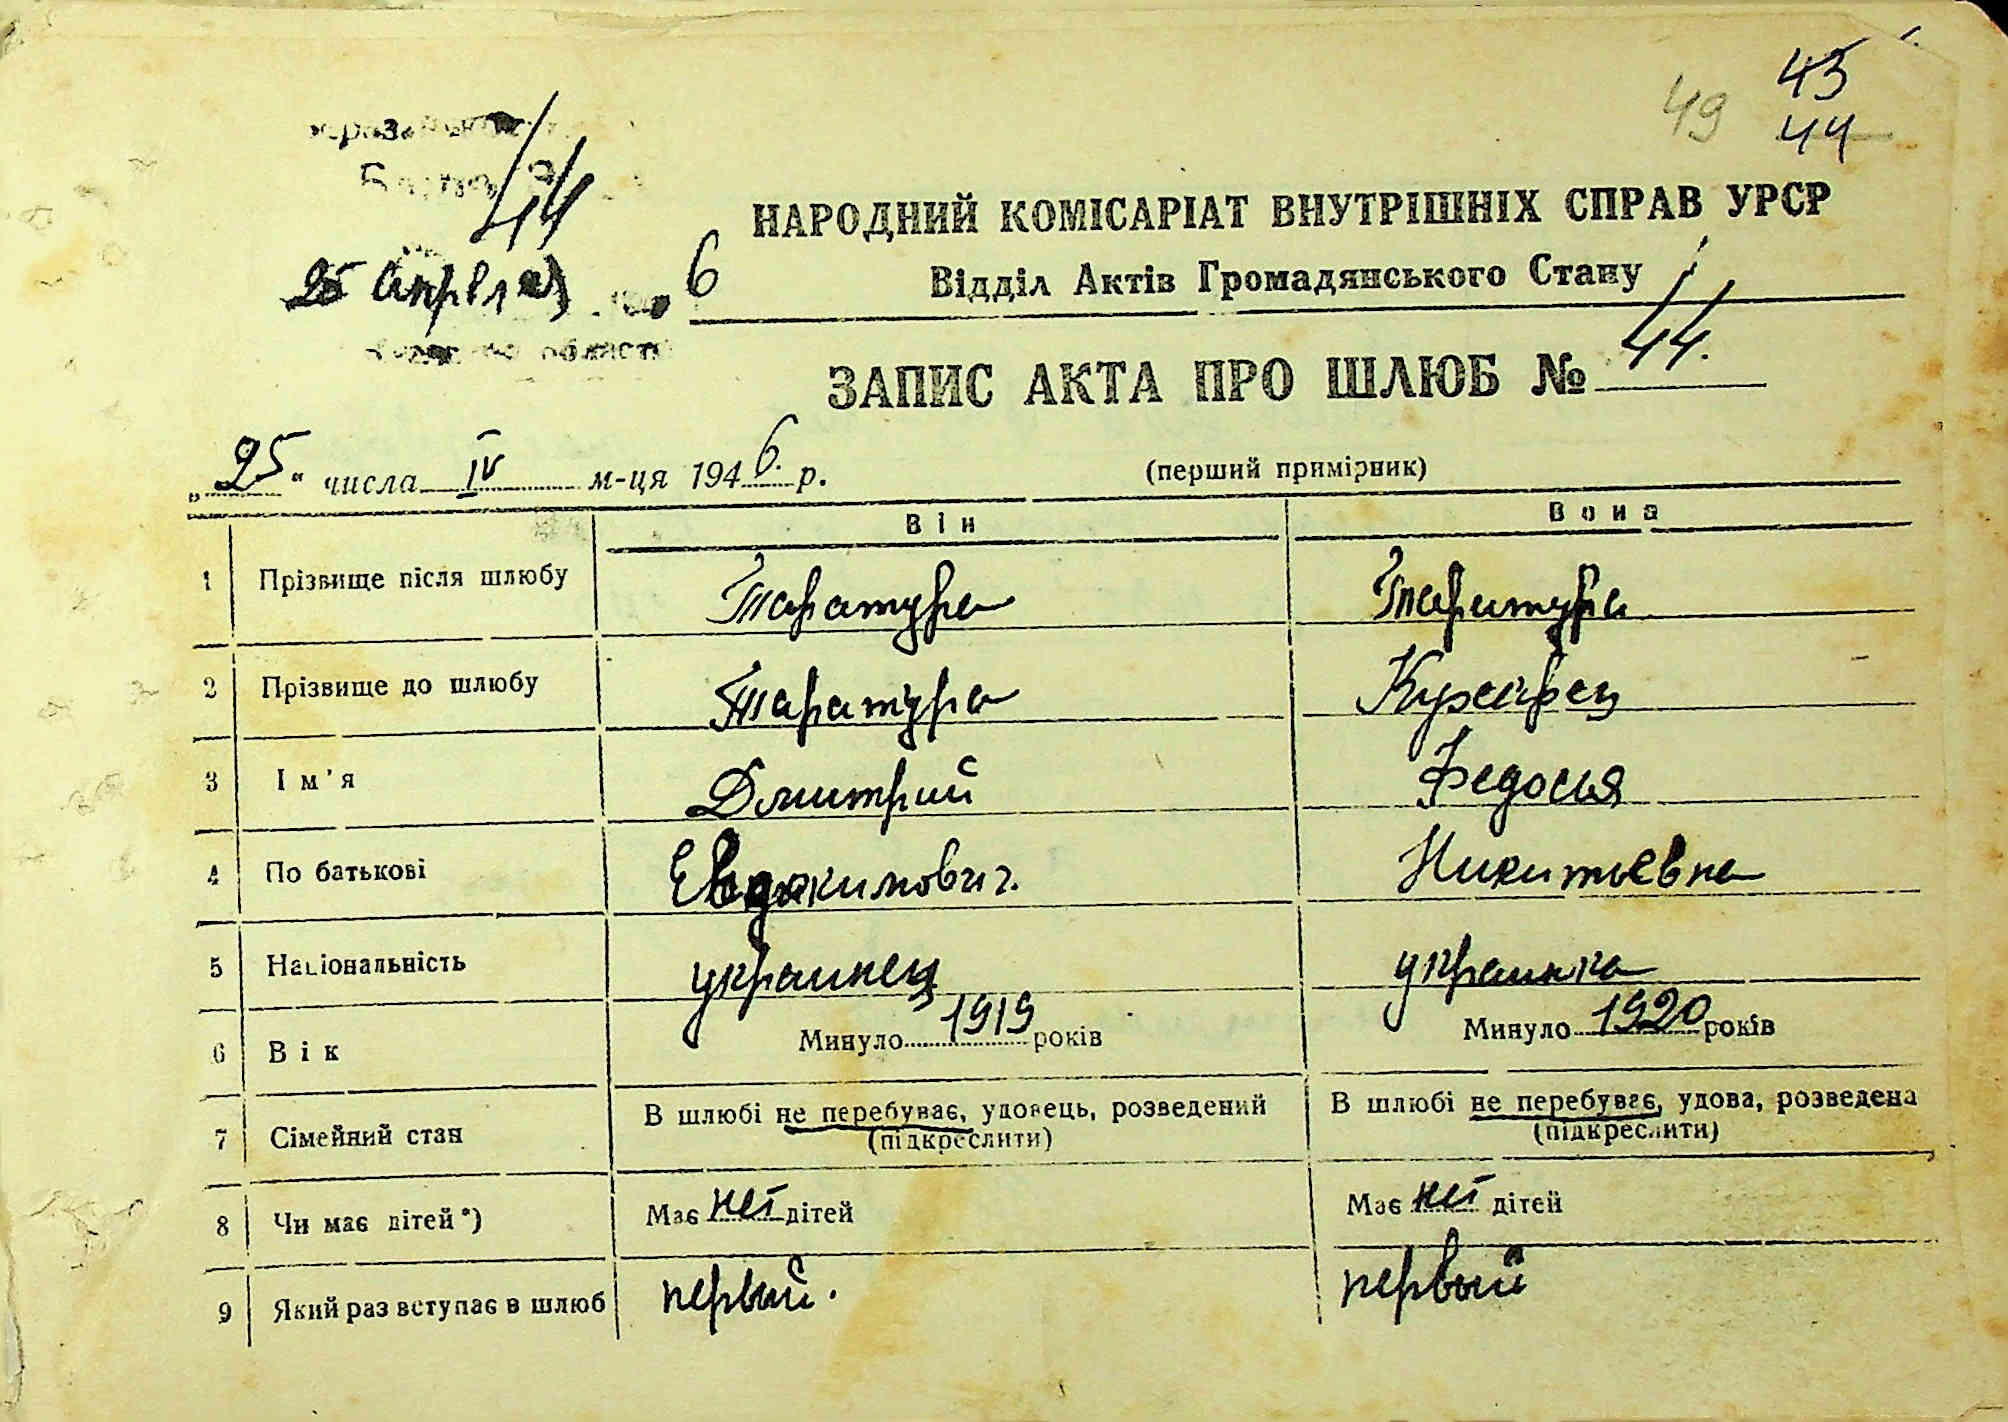 49 43
44
44
25 апреля 6
області
НАРОДНИЙ КОМІСАРІАТ ВНУТРІШНІХ СПРАВ УРСР
Відділ Актів Громадянського Стану
ЗАПИС АКТА ПРО ШЛЮБ № 44.
„25“ числа IV м-ця 1946. р.
(перший примірник)
Він Вона
1 Прізвище після шлюбу Таратура Таратура
2 Прізвище до шлюбу Таратура
3 Ім'я Дмитрий Федосья
4 По батькові Евдокимович. Никитьевна
5 Національність украинец украинка
6 Вік Минуло 1919 років Минуло 1920 років
7 Сімейний стан В шлюбі не перебуває, удовець, розведений (підкреслити) В шлюбі не перебуває, удова, розведена (підкреслити)
8 Чи має дітей*) Має нет дітей Має нет дітей
9 Який раз вступає в шлюб первый. первый